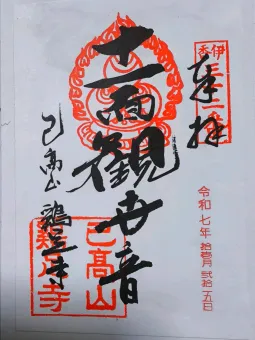 伊香
奉拝
令和七年 拾壹月 弐拾五日
十一面觀世音
己高山 鶏足寺
己髙山
鶏足寺